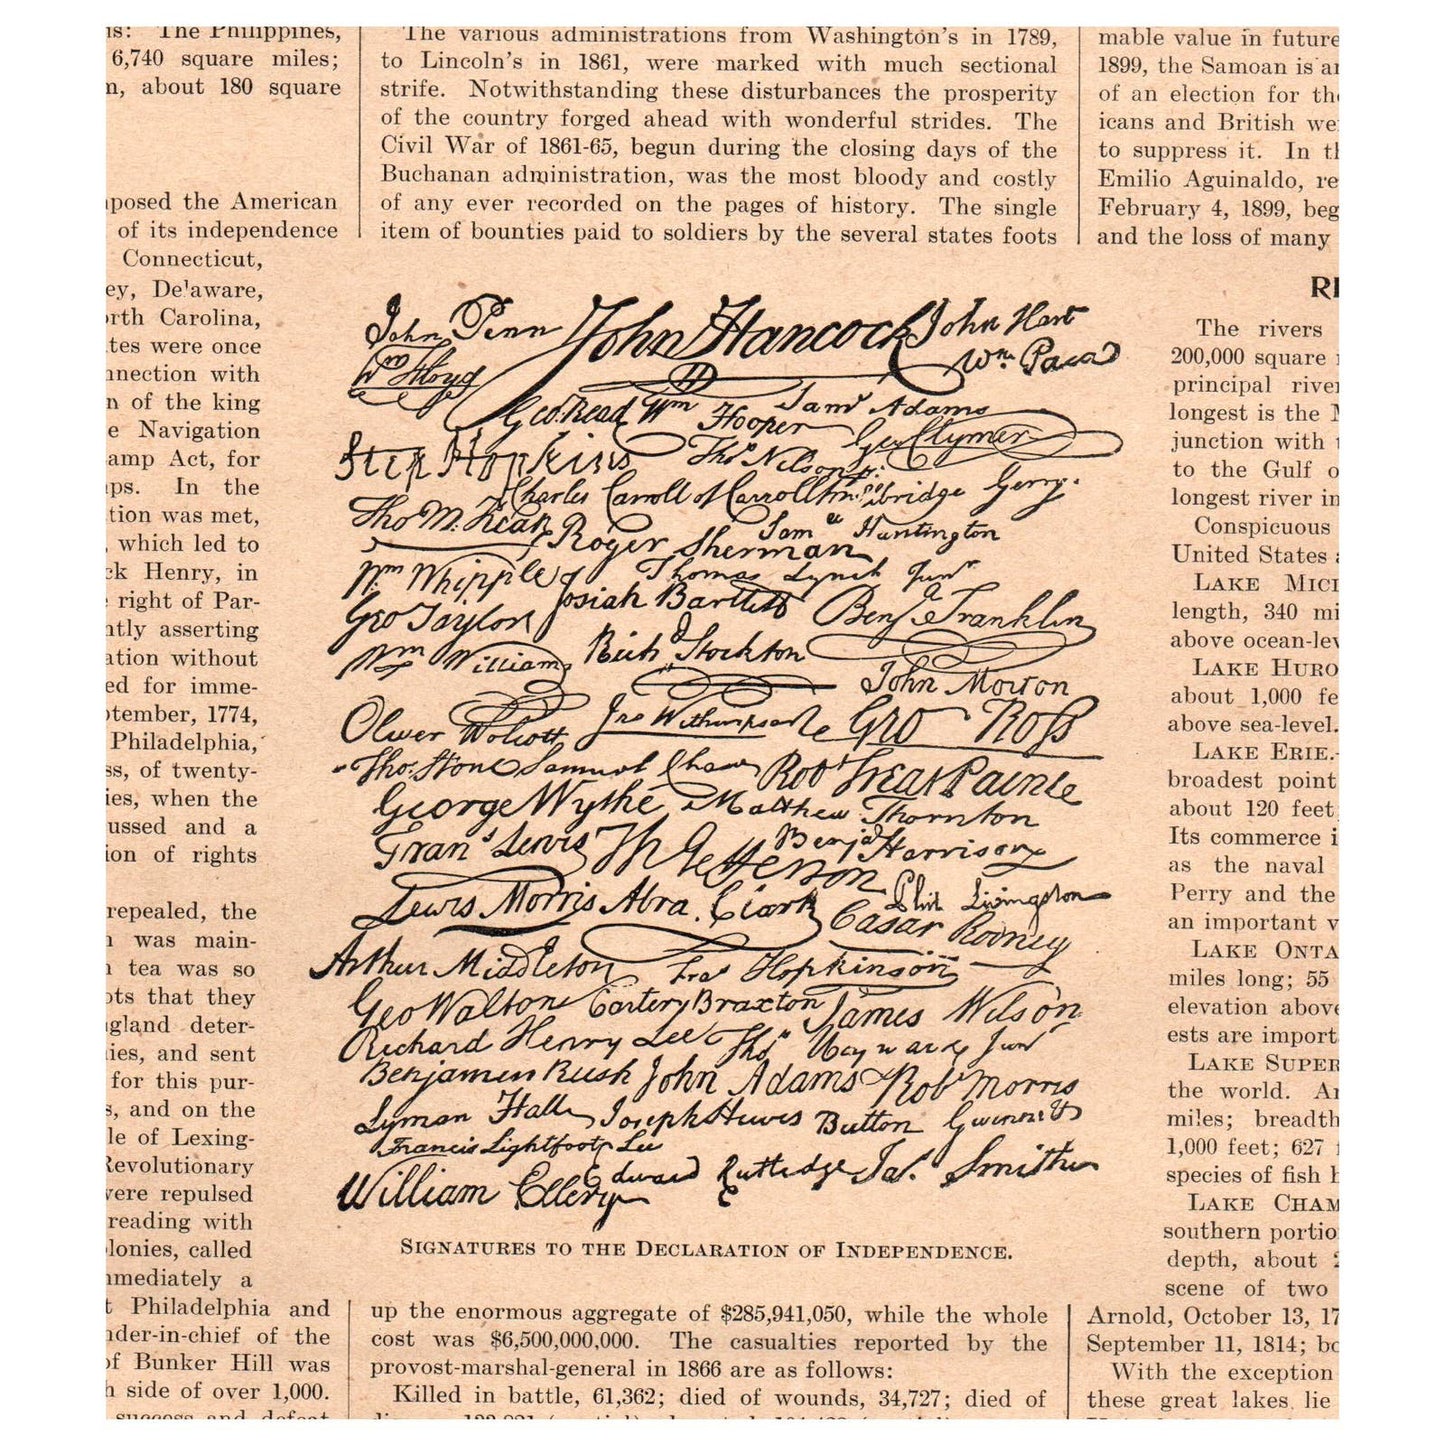 is: The Philippines,
6,740 square miles;
n, about 180 square
posed the American
of its independence
Connecticut,
ey, Delaware,
rth Carolina,
tes were once
nnection with
n of the king
e Navigation
amp Act, for
ps. In the
tion was met,
, which led to
ck Henry, in
right of Par-
tly asserting
ation without
ed for imme-
tember, 1774,
Philadelphia,
ss, of twenty-
ies, when the
ussed and a
ion of rights
repealed, the
was main-
tea was so
ots that they
gland deter-
ies, and sent
for this pur-
s, and on the
le of Lexing-
Revolutionary
vere repulsed
reading with
lonies, called
mmediately a
t Philadelphia and
nder-in-chief of the
of Bunker Hill was
h side of over 1,000.
success and defeat
The various administrations from Washington's in 1789,
to Lincoln's in 1861, were marked with much sectional
strife. Notwithstanding these disturbances the prosperity
of the country forged ahead with wonderful strides. The
Civil War of 1861-65, begun during the closing days of the
Buchanan administration, was the most bloody and costly
of any ever recorded on the pages of history. The single
item of bounties paid to soldiers by the several states foots
John Penn John Hancock John Hart
Wm Floyd Wm. Paca
Geo. Read Wm Hooper Saml Adams
Step Hopkins Geo Clymer
Thos Nelson jr.
Charles Carroll of Carrollton. Elbridge Gerry.
Tho M. Kean Roger Sherman Saml Huntington
Wm Whipple Thomas Lynch Junr
Josiah Bartlett Benj Franklin
Geo Taylor Richd Stockton
Wm Williams John Morton
Oliver Wolcott Jno Witherspoon Geo Ross
Thos. Stone Samuel Chase Robt Treat Paine
George Wythe Matthew Thornton
Frans Lewis Th Jefferson Benja Harrison
Lewis Morris Abra. Clark Phil Livingston
Cæsar Rodney
Arthur Middleton Fras Hopkinson
Geo Walton Carter Braxton James Wilson
Richard Henry Lee Thos Heyward Junr
Benjamin Rush John Adams Robt Morris
Lyman Hall Joseph Hewes Button Gwinnett
Francis Lightfoot Lee
William Ellery Edward Rutledge Jas. Smith
SIGNATURES TO THE DECLARATION OF INDEPENDENCE.
up the enormous aggregate of $285,941,050, while the whole
cost was $6,500,000,000. The casualties reported by the
provost-marshal-general in 1866 are as follows:
Killed in battle, 61,362; died of wounds, 34,727; died of
mable value in future
1899, the Samoan is ar
of an election for the
icans and British we
to suppress it. In th
Emilio Aguinaldo, re
February 4, 1899, beg
and the loss of many
RI
The rivers
200,000 square
principal river
longest is the M
junction with
to the Gulf o
longest river in
Conspicuous
United States a
LAKE MICH
length, 340 mi
above ocean-lev
LAKE HURO
about 1,000 fe
above sea-level.
LAKE ERIE.-
broadest point
about 120 feet
Its commerce i
as the naval
Perry and the
an important v
LAKE ONTA
miles long; 55
elevation above
ests are import
LAKE SUPER
the world. Ar
miles; breadth
1,000 feet; 627
species of fish h
LAKE CHAM
southern portio
depth, about 2
scene of two
Arnold, October 13, 17
September 11, 1814; bo
With the exception
these great lakes lie